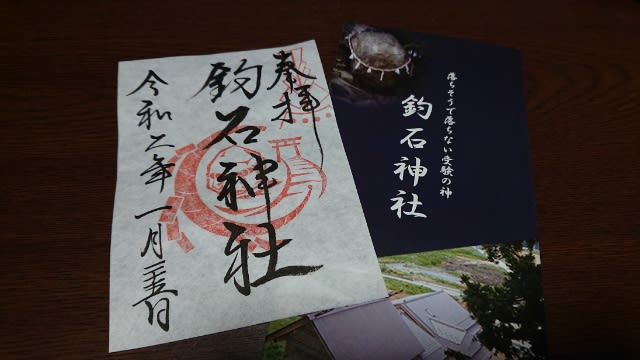 奉拝
釣石神社
令和二年一月二十五日
落ちそうで落ちない受験の神
釣石神社